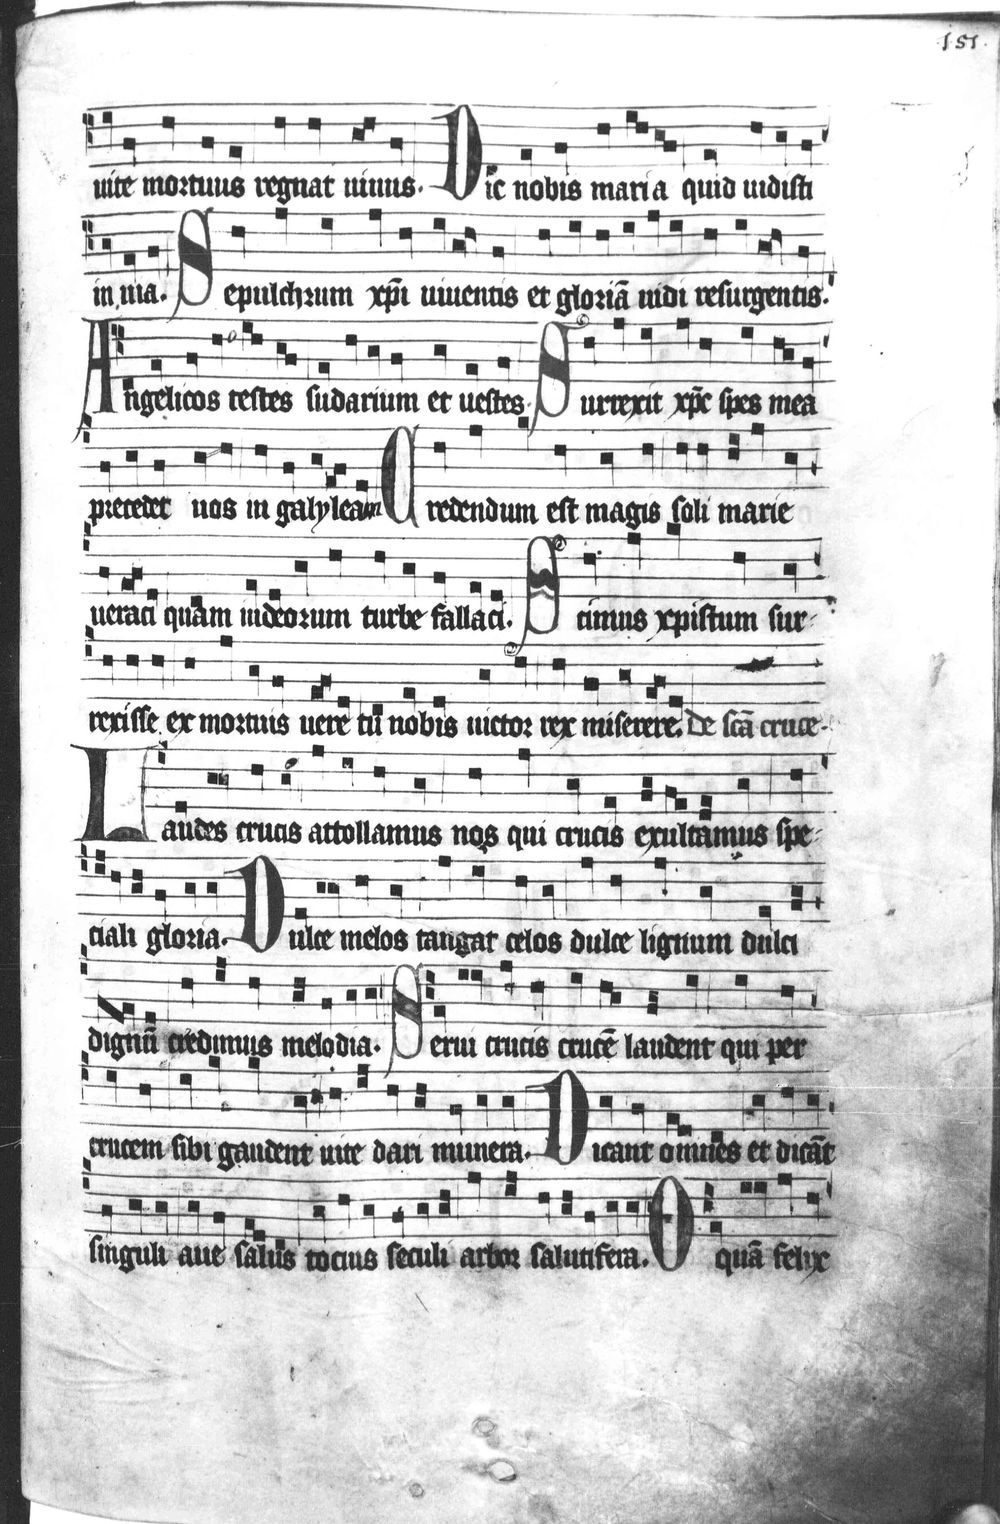 151.
uite mortuus regnat uiuus. Dic nobis maria quid uidisti
in uia. Sepulchrum xp̄i uiuentis et gloriā uidi resurgentis.
Angelicos testes sudarium et uestes. Surrexit xp̄c spes mea
precedet uos in galyleam Credendum est magis soli marie
ueraci quam iudeorum turbe fallaci. Scimus xpistum sur-
rexisse ex mortuis uere tū nobis uictor rex miserere. De scā cruce.
Laudes crucis attollamus nos qui crucis exultamus spe-
ciali gloria. Dulce melos tangat celos dulce lignum dulci
dignū credimus melodia. Serui crucis crucē laudent qui per
crucem sibi gaudent uite dari munera. Dicant omnes et dicāt
singuli aue salus tocius seculi arbor salutifera. O quā felix